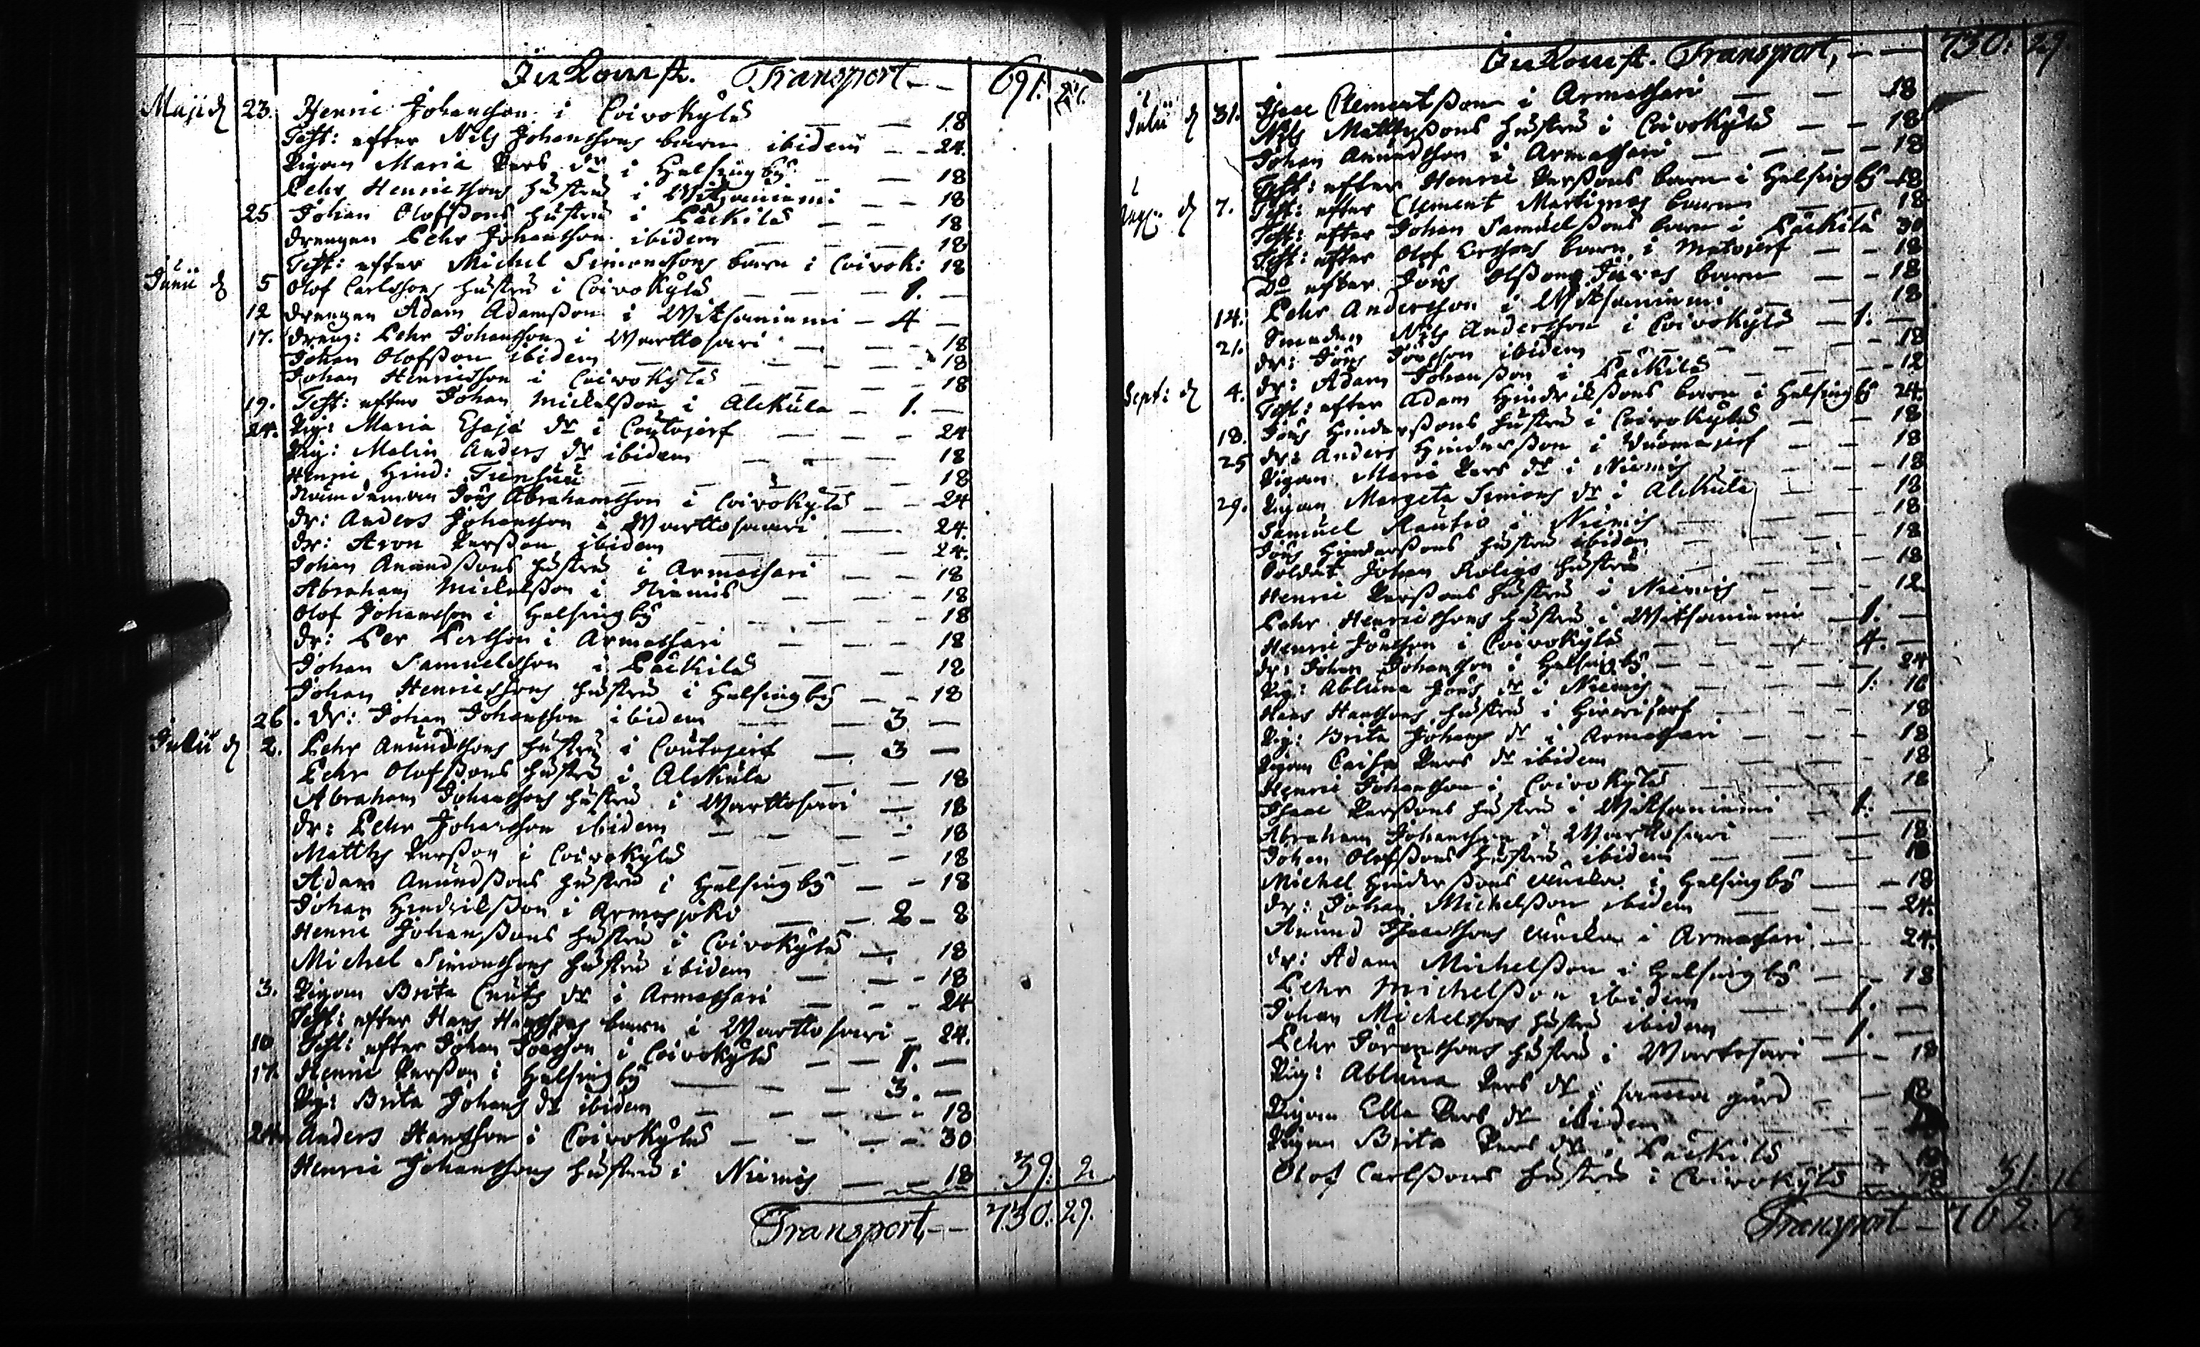 Inkomst. Transport — 691. 27.
Maji d 23. Henric Johansson i Coivokylä — — 18
Test: efter Nils Johanssons barn ibidem — 24.
Pigan Maria Pers dr i Helsingby — 18
Pehr Henricssons hustru i Witsaniemi — 18
25 Johan Olofssons hustru i Päckilä — — 18
Drengen Pehr Johansson ibidem — 18
Test: efter Michel Simonssons barn i Coivok: 18
Junii d 5 Olof Carlssons hustru i Coivokylä — 1. —
12 Drengen Adam Adamsson i Witsaniemi — 4 —
17. Dreng: Pehr Johansson i Warttosari — 18
Johan Olofsson ibidem — — 18
Johan Henricsson i Coivokylä — — 18
19. Test: efter Johan Mickelsson i Alckula — 1. —
24. Pig: Maria Esaja dr i Coutojerf — — 24
Pig: Malin Anders dr ibidem — — 18
Henric Hind: — 18
Jöns Abrahamsson i Coivokylä — 24
dr: Anders Johansson i Warttosaari — 24.
dr: Aron Persson ibidem — — 24.
Johan Anundssons hustru i Armassari — — 18
Abraham Mickelsson i Niemis — — 18
Olof Johansson i Helsingby — — 18
dr: Per Persson i Armassari — — 18
Johan Samuelsson i Päckilä — — 18
Johan Henricssons hustru i Helsingby — — 18
26. dr: Johan Johansson ibidem — — 3 —
Julii d 2. Pehr Anundssons hustru i Coutojerf — 3 —
Pehr Olofssons hustru i Alckula — — 18
Abraham Johanssons hustru i Warttosari — 18
dr: Pehr Johansson ibidem — — 18
Matths Persson i Coivokylä — — 18
Adam Anundssons hustru i Helsingby — — 18
Johan Hindricksson i Armasjoki — — 2 — 8
Henric Johanssons hustru i Coivokylä — 18
Michel Simonssons hustru ibidem — — 18
3. Pigan Brita Cnuts dr i Armassari — — 24
Test: efter Hans Hanssons barn i Warttosari — 24.
10 Test: efter Johan Joensson i Coivokylä — 1. —
17. Henric Persson i Helsingby — 3. —
Pig: Brita Johans dr ibidem — — 18
24. Anders Hansson i Coivokylä — — 30
Henric Johanssons hustru i Niemis — — 18 39. 2
Transport — 730. 29.
Inkomst. Transport, — — 730. 29.
Julii d 31. Isaac Clementsson i Armassari — — 18
Nils Matthssons hustru i Coivokylä — — 18
Johan Anundsson i Armassari — — 18
Test: efter Henric Perssons barn i Helsingby — 18
Aug: d 7. Test: efter Clement Martinis barn — 18
Test: efter Johan Samuelssons barn i Päckilä 30
Test: efter Olof Erssons barn i Matojerf — — 18
Do efter Jöns Olssons barn — — 18
14. Pehr Andersson i Witsaniemi — 18
Smeden Nils Andersson i Coivokylä — 1. —
21. dr: Jöns Joensson ibidem — — 18
dr: Adam Johansson i Päckilä — — 12
Sept: d 4. Test: efter Adam Hindrickssons barn i Helsingby 24.
Jöns Hinderssons hustru i Coivokylä — — 18
18. dr: Anders Hindersson i Wuomajerf — 18
25 Pigan Maria Pers dr i Niemis — — 18
29. Pigan Margeta Simons dr i Alckula — 18
Samuel Rautio i Niemis — — 18
Jöns Hinderssons hustru ibidem — — 18
Soldat Johan Roligs hustru — — 18
Henric Perssons hustru i Niemis — — 12
Pehr Henricssons hustru i Witsaniemi — 1. —
Henric Jönsson i Coivokylä — 4. —
dr: Johan Johansson i Helsingby — — 24
Pig: Abluna Jöns dr i Niemis — 1. 16
Hans Hanssons hustru i Hirvisjerf — — 18
Pig: Brita Johans dr i Armassari — — 18
Pigan Caisa Pers dr ibidem — — 18
Henric Johansson i Coivokylä — — 18
Isaac Perssons hustru i Witsaniemi — 1. —
Abraham Johansson i Warttosari — — 18
Johan Olofssons hustru ibidem — — 18
Michel Hinderssons äncka i Helsingby — — 18
dr: Johan Michelsson ibidem — — 24.
Anund Isaacssons äncka i Armassari — 24.
dr: Adam Michelsson i Helsingby — — 18
Pehr Michelsson ibidem — 1. —
Johan Michelssons hustru ibidem — 1. —
Pehr Joranssons hustru i Wartosari — — 18
Pig: Abluna Pers dr i samma gård — — 18
Pigan Ella Pers dr ibidem — —
Pigan Brita Pers dr i Päckilä — — 18
Olof Carlssons hustru i Coivokylä — 18 31. 16
Transport — 762.